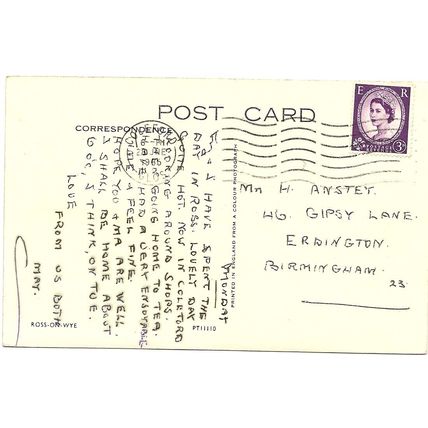 POST CARD
CORRESPONDENCE
MONDAY
I HAVE SPENT THE
DAY IN ROSS. LOVELY DAY
QUITE HOT. NOW IN COLEFORD
LOOKING AROUND SHOPS.
GOING HOME TO TEA.
HAVE HAD A VERY ENJOYABLE
TIME & FEEL FINE.
HOPE YOU & MA ARE WELL.
I SHALL BE HOME ABOUT
6 OC, I THINK, ON TUE.
LOVE
FROM US BOTH
MAY.
ROSS-ON-WYE
PT11110
PRINTED IN ENGLAND FROM A COLOUR PHOTOGRAPH
E R
3D
Mr H. ANSTEY.
46, GIPSY LANE.
ERDINGTON.
BIRMINGHAM.
23